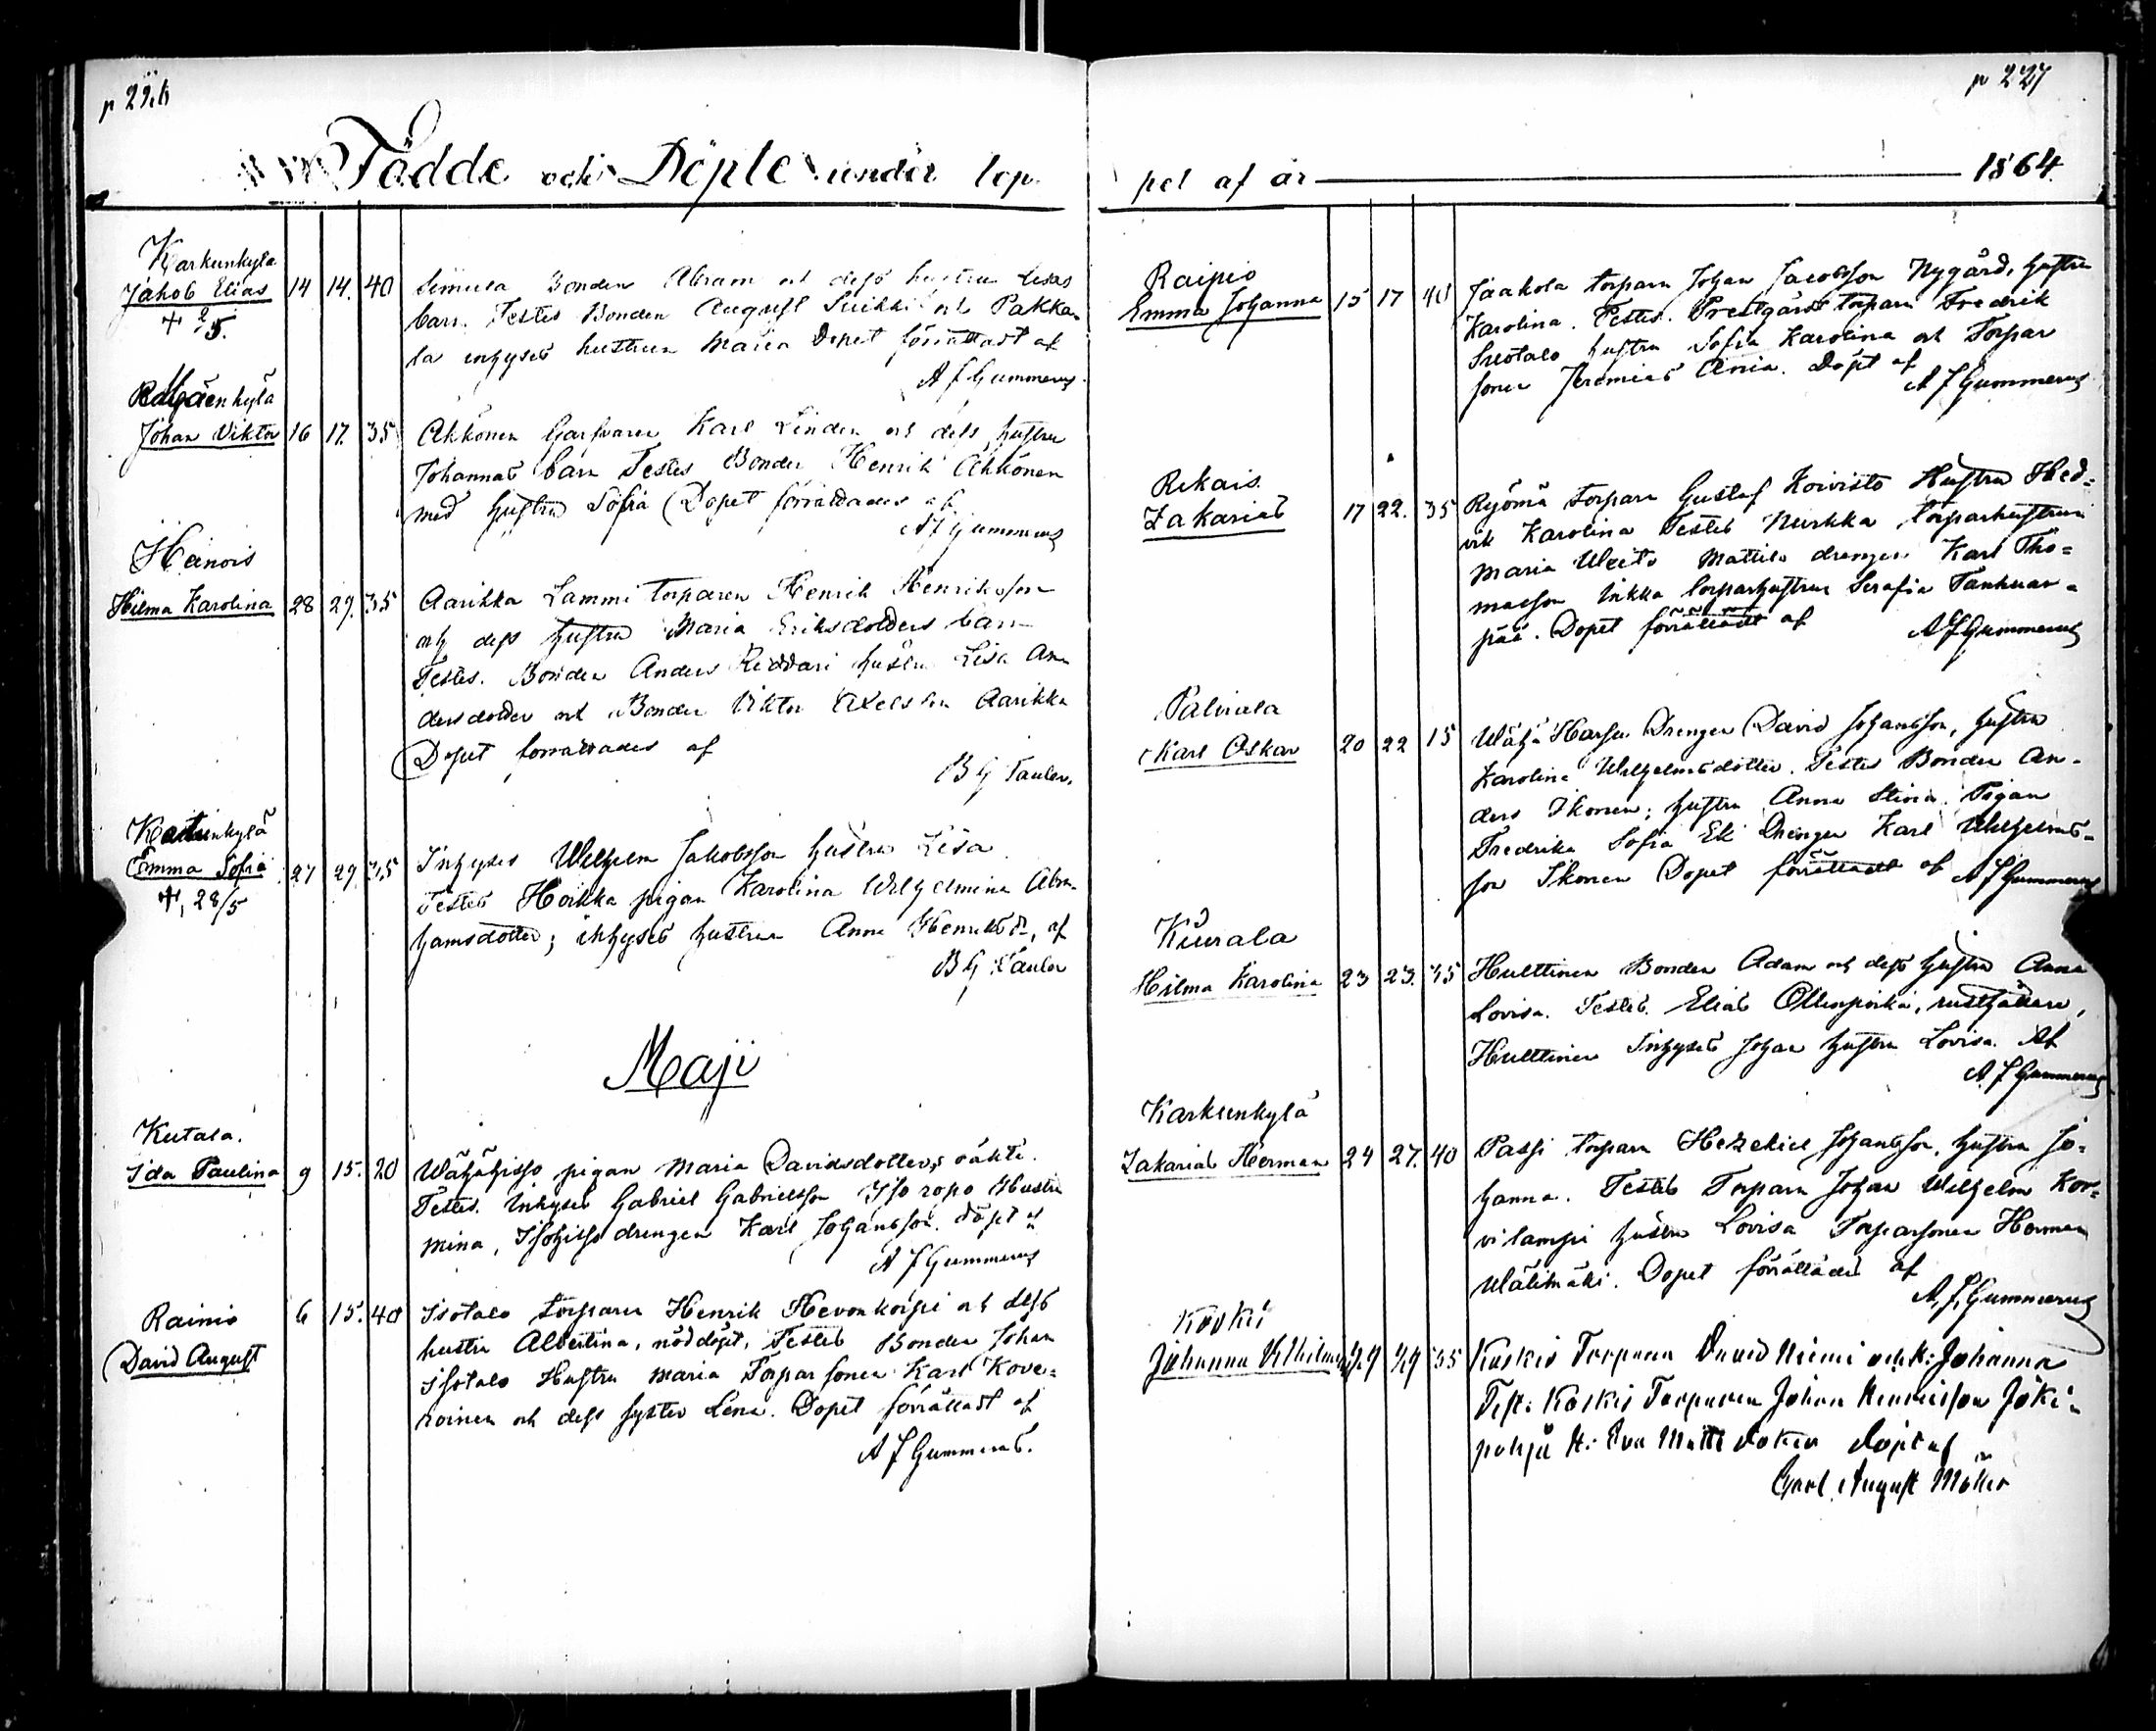 p 226
Födde och Döpte under lop
Karkunkyla
Jakob Elias 14 14. 40 Simula Bonden Abram och dess hustru Lisas
+ 2/5. barn. Testes Bonden August Suikki och Pakka-
la inhyses hustrun Maria Dopet förrättadt af
A F Gummerus.
Johan Viktor 16 17. 35 Äkkönen Garfvaren Karl Linden och dess hustru
Johannas barn Testes Bonden Henrik Äkkönen
med hustru Sofia Dopet förrättades af
A F Gummerus
Heinois
Hilma Karolina 28 29. 35 Aarikka Lammi torparen Henrik Henriksson
och dess hustru Maria Eriksdotters barn
Testes. Bonden Anders Riddari hustru Lisa An
dersdotter och Bonden Viktor Axelsson Aarikka
Dopet förrättades af
B G Tauler.
Emma Sofia 27 29. 35 Inhyses Wilhelm Jakobsson hustru Lisa
+, 28/5 Testes Hoikka pigan Karolina Wilhelmina Abra-
hamsdotter; inhyses hustrun Anna Henriksd., af
B G Tauler
Maji
Kutala.
Ida Paulina 9 15. 20 Wähähisso pigan Maria Davidsdotters oäkta.
Testes. Inhyses Gabriel Gabrielsson Iso ropo Hustru
Mina, Isohisso drengen Karl Johansson. döpt af
A F Gummerus
Rainio 6 15. 40 Isotalo torparen Henrik Hevonkorpi och dess
David August hustru Albertina, nöddöpt, Testes Bonden Johan
Isotalo Hustru Maria Torparsonen Karl Kove-
roinen och dess syster Lena. Dopet förrättadt af
A F Gummerus.
p 227
pet af år 1864.
Raipio
Emma Johanna 15 17 40 Jaakola torparn Johan Jacobsson Nygård, hustru
Karolina. Testes. Prestgårds torparn Fredrik
hustru Sofia Karolina och Torpar
sonen Jeremias Ania. Döpt af
A F Gummerus
Rekais.
Zakarias 17 22. 35 Ryömä torparn Gustaf Koivisto Hustru Hed-
vik Karolina Testes Nirkka torparhustrun
Maria Mattila drengen Karl Tho-
masson Inkka torparhustrun Serafia Tanhuan-
pää. Dopet förrättadt af
A F Gummerus
Palviala
Karl Oskar 20 22 15 Wähä Harju Drengen David Johansson, hustru
Karolina Wilhelmsdotter. Testes Bonden An-
ders Ikonen; hustru Anna Stina. Pigan
Fredrika Sofia Ek Drengen Karl Wilhelms-
son Ikonen Dopet förrättadt af A F Gummerus
Kiurala
Hilma Karolina 23 23. 35 Hulttinen Bonden Adam och dess hustru Anna
Lovisa. Testes. Elias Ollenpoika, rusthållare,
Hulttinen Inhyses Johan hustru Lovisa. Af
A F Gummerus
Karkunkylä
Zakarias Herman 24 27. 40 Passi torparn Hezekiel Johansson, hustru Jo-
hanna. Testes Torparn Johan Wilhelm Kor-
vilampi hustru Lovisa Torparsonen Herman
Wälimäki. Dopet förrättades af
A, F, Gummerus
Koski
Johanna Vilhelmina 29 29 35 Koskis Torparen David Niemi och H: Johanna
Test: Koskis Torparen Johan Henriksson Joki-
pohja H: Eva Matts doter döpt af
Carl August Möller